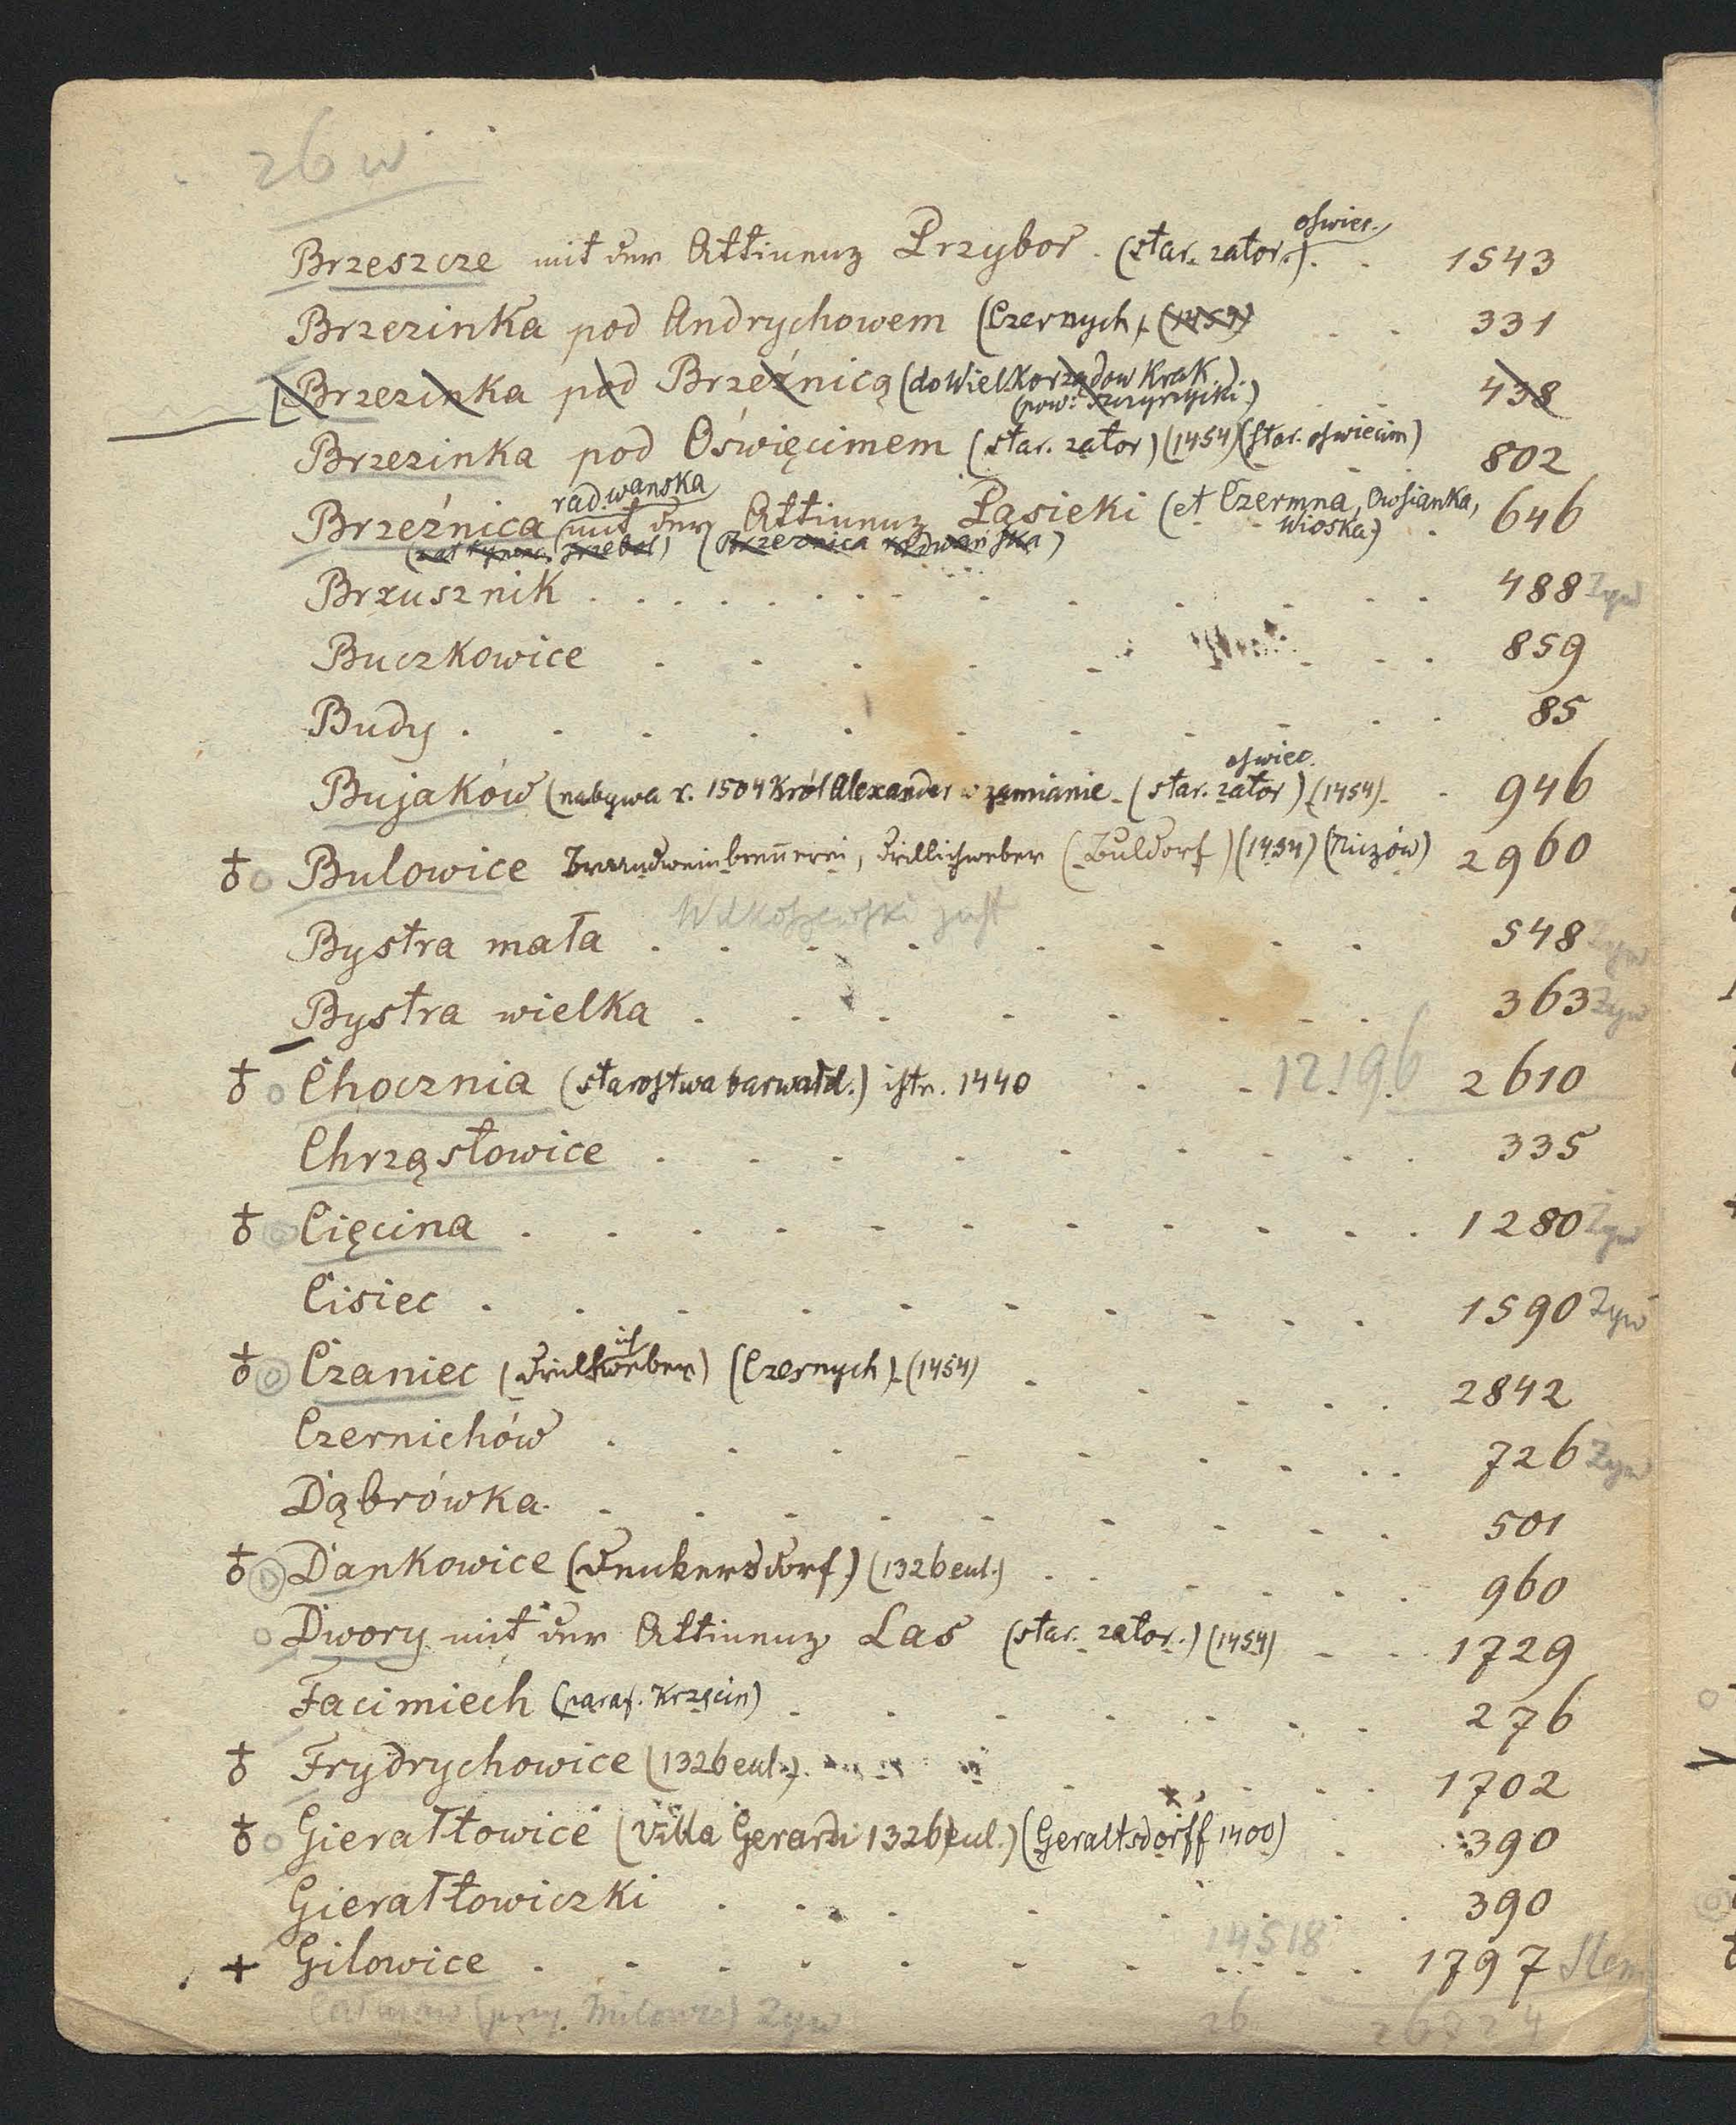 26 w
oświec.
Brzeszcze mit der Attinenz Przybor. (star. zator.) . . 1543
Brzezinka pod Andrychowem (Czernych) (1454) . . 331
Brzezinka pod Brzeźnicą (do Wielkorządow Krak.) . . 438
(pow. szczyrzycki.)
Brzezinka pod Oświęcimem (star. zator) (1454) (star. oświecim) 802
radwanska
Brzeźnica (mit der Attinenz Pasieki (et Czermna, Owsianka, 646
Wioska)
(Brzeznica radwańska)
Brzusznik . . . . . . . . . . 488 Zyw
Buczkowice . . . . . . . . 859
Budy . . . . . . . . . . 85
oswiec.
Bujaków (nabywa r. 1504 Król Alexander w zamianie. (star. zator) (1454). . 946
♁ o Bulowice Branndweinbrennerei, Drillichweber (Buldorf) (1454) (Niczów) 2960
Bystra mała . . . . . . . . 548 Zyw
Bystra wielka . . . . . . . . 363 Zyw
♁ o Chocznia (starostwa barwałd.) istn. 1440 . . 12.196 2610
Chrząstowice . . . . . . . . 335
♁ o Cięcina . . . . . . . . . . 1280 Zyw
Cisiec . . . . . . . . . . 1590 Zyw
ich
♁ o Czaniec (Drillweber) (Czernych) (1454) . . . . . 2842
Czernichów . . . . . . . . . 726 Zyw
Dąbrówka . . . . . . . . . 501
♁ o Dankowice (Denkersdorf) (1326 eul.) . . . . . . 960
o Dwory mit der Attinenz Las (star. zator.) (1454) . . . 1729
Facimiech (paraf. Krzęcin) . . . . . . . 276
♁ Frydrychowice (1326 eul.) . . . . . 1702
♁ o Gierałtowice (Villa Gerardi 1326 eul.) (Geraltsdorff 1400) . 390
Gierałtowiczki . . . . . . . . 390
+ Gilowice . . . . . . . . 14518 1797 Slem
26 26824